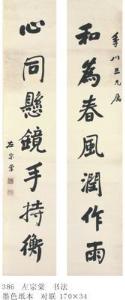 和為春風潤作雨
心同懸鏡手持衡
左宗棠
386 左宗棠 书法
墨色纸本 对联 170×34